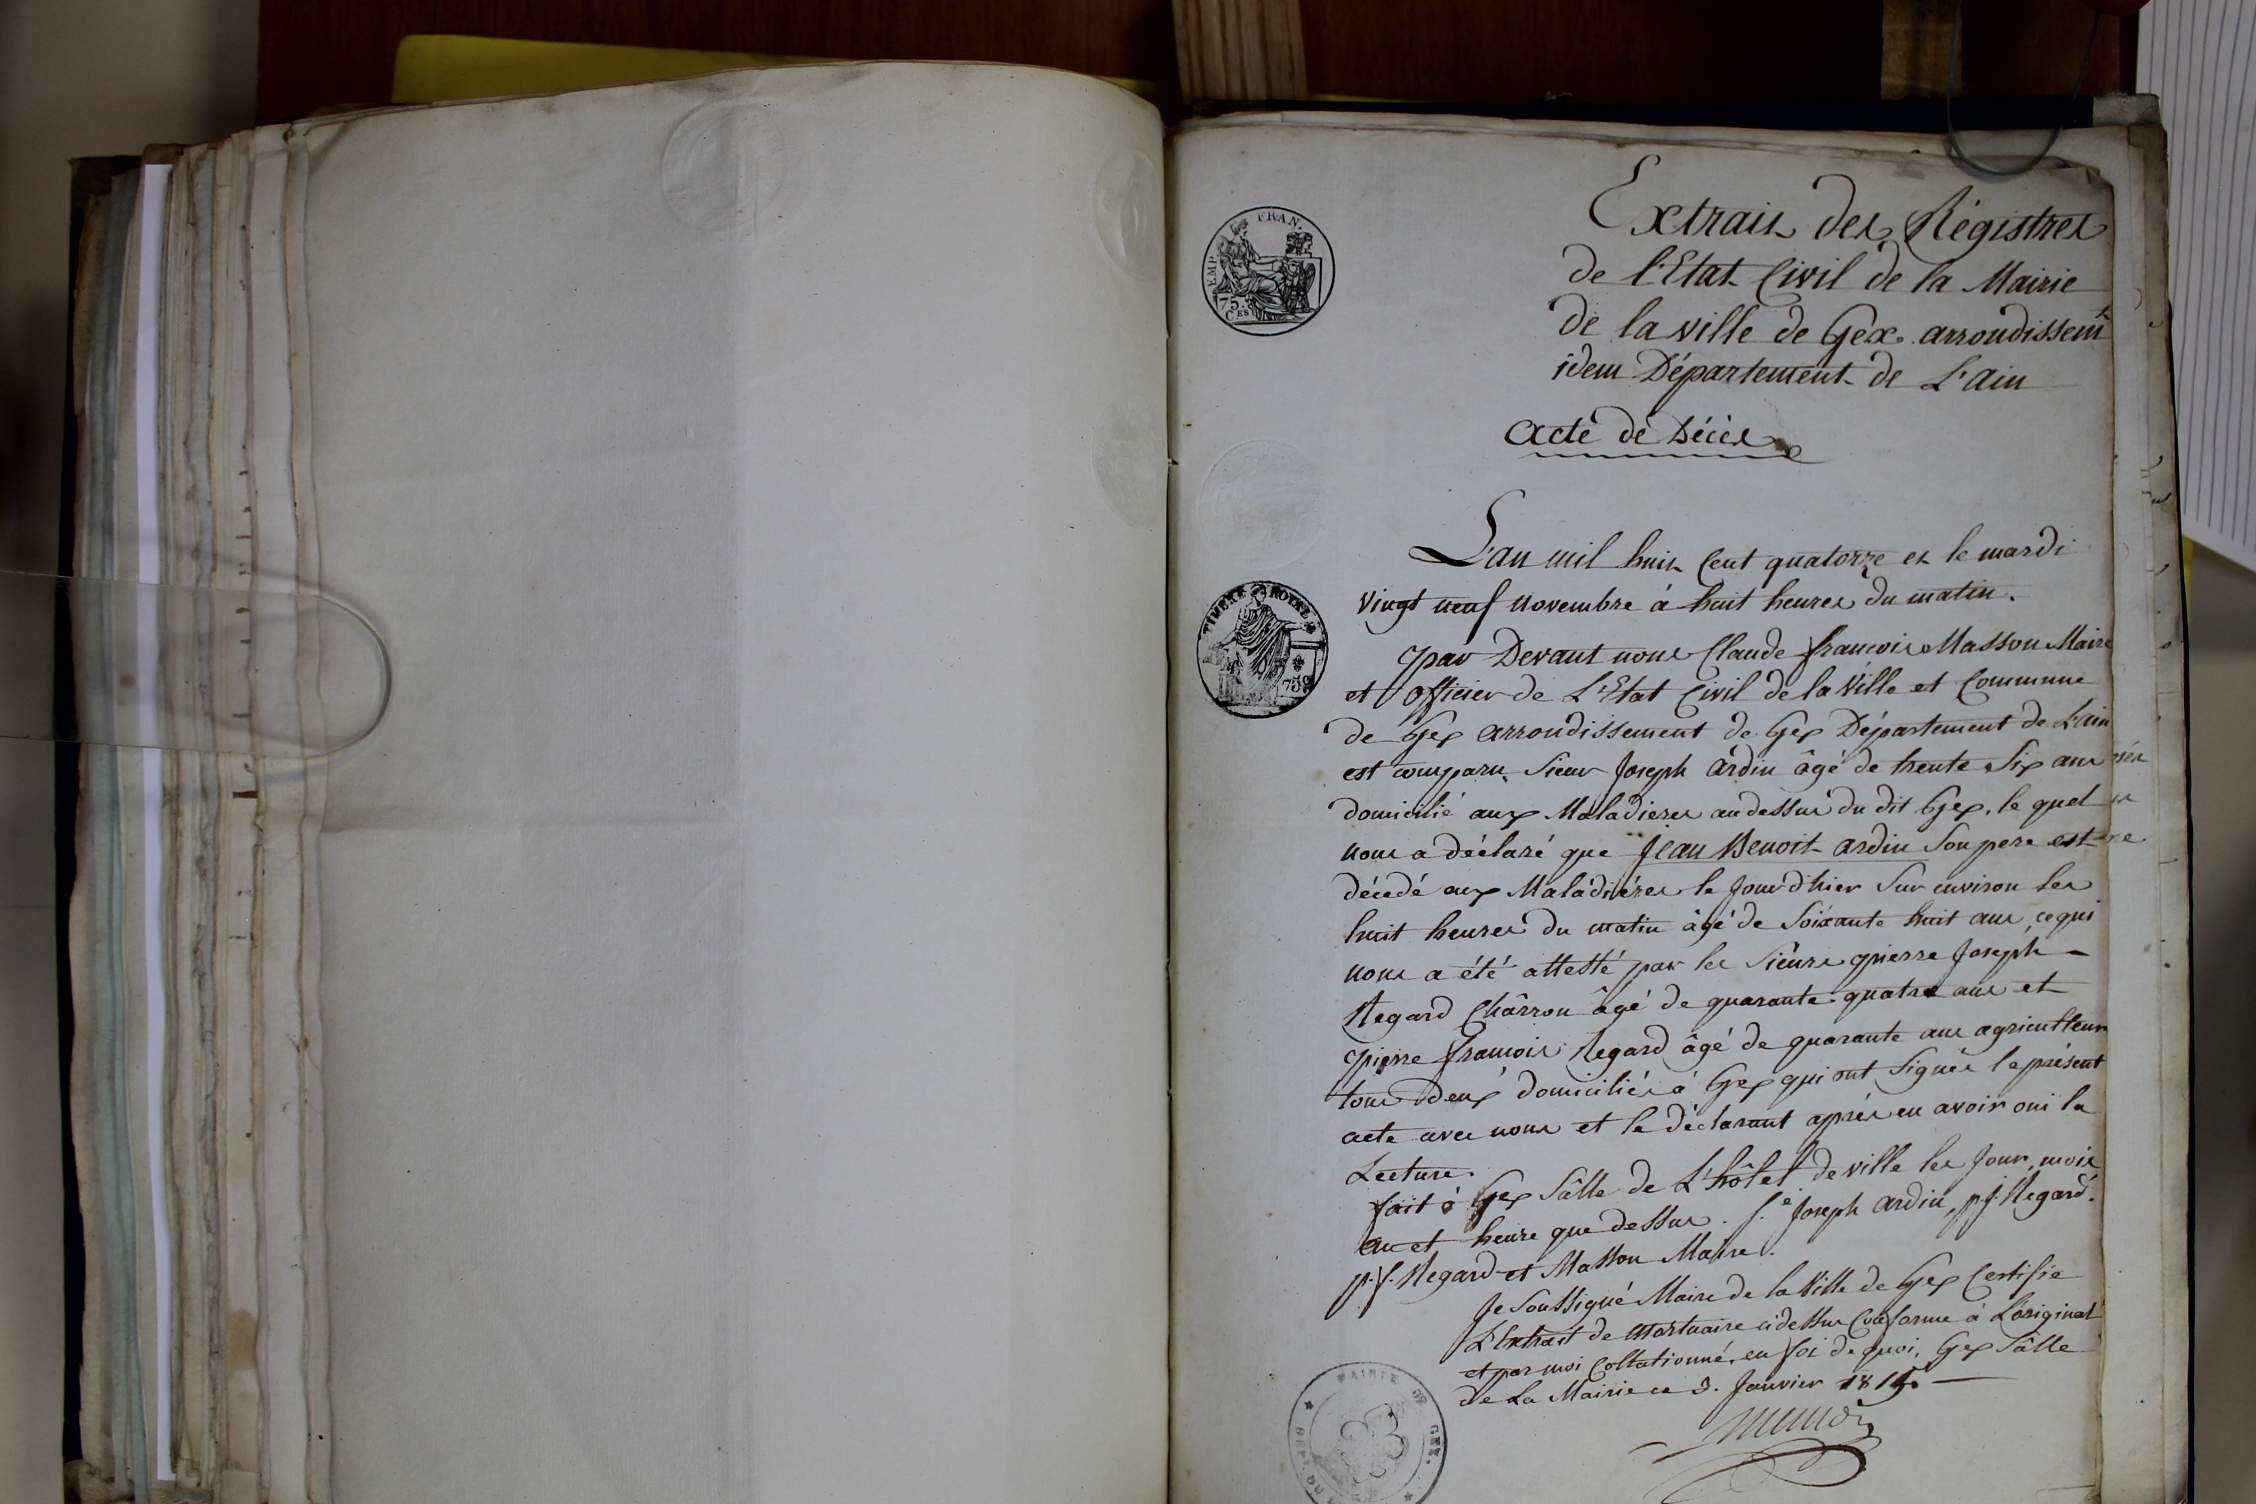 EMP. FRAN.
75.
C.ES
Extrait des Régistres
de l'Etat Civil de la Mairie
de la ville de Gex arrondissemt
idem Département de L'ain
Acte de Décès
L'an mil huit Cent quatorze et le mardi
vingt neuf novembre à huit heures du matin.
TIMBRE ROYAL
par Devant nous Claude françois Masson Maire
et officier de L'Etat Civil de la Ville et Commune
de Gex arrondissement de Gex Département de L'ain
est comparu Sieur Joseph Ardin âgé de trente Six ans
domicilié aux Maladieres au dessus du dit Gex, le quel
nous a déclaré que Jean Benoit ardin Son pere est
décedé aux Maladiéres le Jour d'hier Sur environ les
huit heures du matin âgé de Soixante huit ans, ce qui
nous a été attesté par les Sieurs pierre Joseph
Regard Chârron âgé de quarante quatre ans et
pierre françois Regard âgé de quarante ans agriculteur
tous deux domiciliés à Gex qui ont Signés le présent
acte avec nous et le déclarant après en avoir oui la
Lecture.
fait à Gex Sâlle de L'hôtel de ville les Jour, mois
an et heure que dessus. f.s Joseph ardin, p.j. Regard.
p.f. Regard et Masson Maire.
Je Soussigné Maire de la Ville de Gex Certifie
L'Extrait de Mortuaire ci dessus Conforme à L'original
et par moi Collationné, en foi de quoi, Gex Sâlle
de La Mairie ce 3. Janvier 1815.
MAIRIE DE GEX.